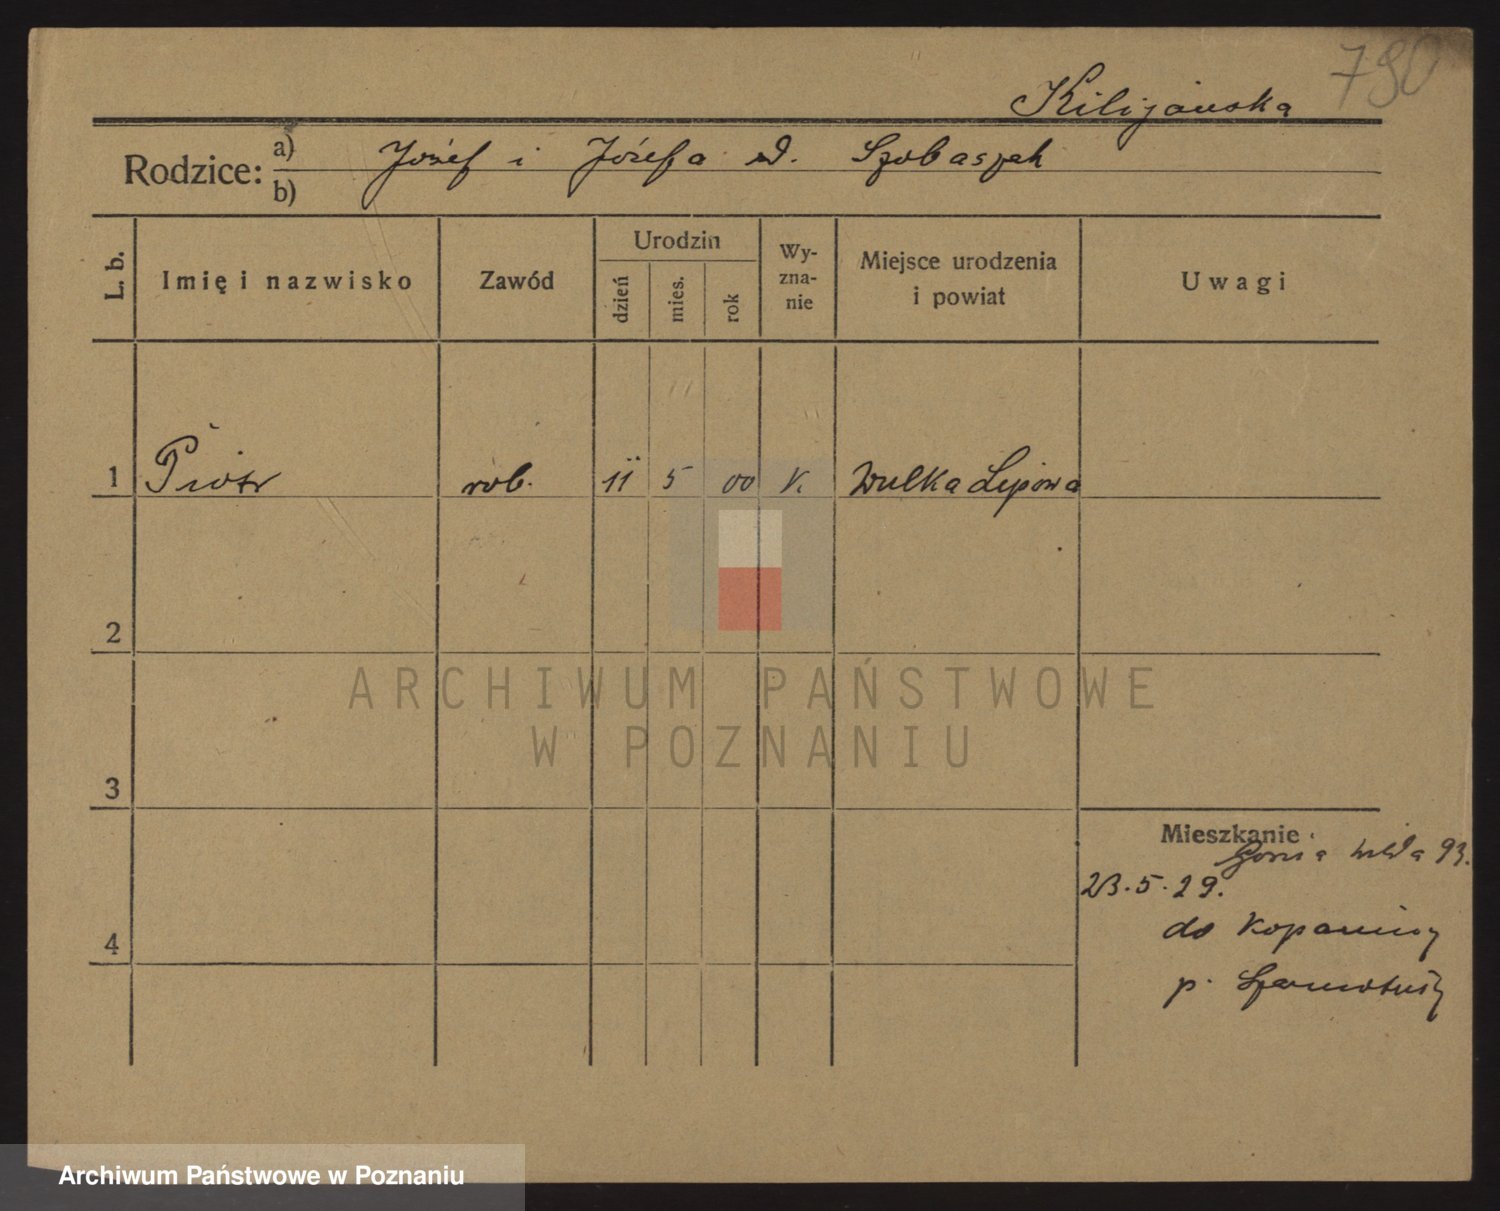 780
Kilijańska
Rodzice: a) Józef i Józefa d. Szobaszek
b)
L. b. Imię i nazwisko Zawód Urodzin dzień mies. rok Wy-zna-nie Miejsce urodzenia i powiat Uwagi
1 Piotr rob. 11 5 00 k. Wulka Lipowa
2
3
4
Mieszkanie
Górna Wilda 93.
23.5.29.
do Kopaniny
p. Szamotuły
ARCHIWUM PAŃSTWOWE
W POZNANIU
Archiwum Państwowe w Poznaniu